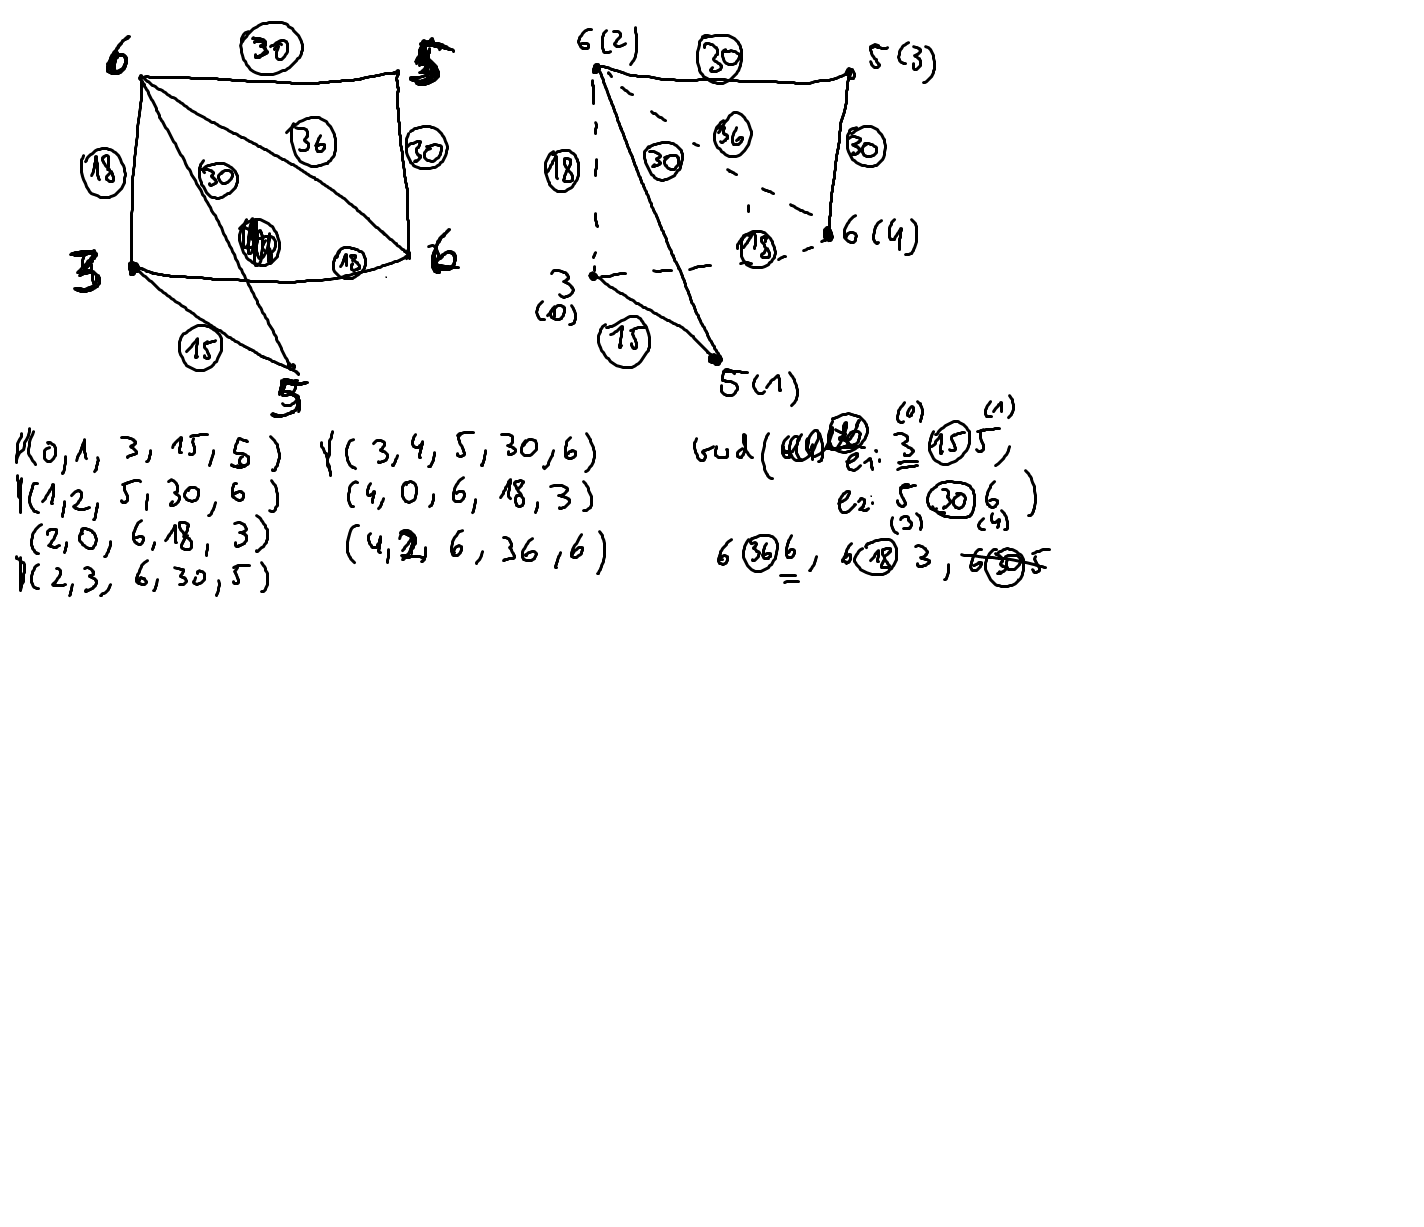 6 30 5
18 30 36 30
3 18 6
15
5
6(2) 30 5(3)
18 30 36 30
18 6(4)
3
(0)
15
5(1)
(0,1, 3, 15, 5)
(1,2, 5, 30, 6)
(2,0, 6,18, 3)
(2,3, 6, 30, 5)
(3,4, 5, 30, 6)
(4,0, 6, 18, 3)
(4,2, 6, 36, 6)
(0) (1)
e1: 3 15 5,
e2: 5 30 6 )
(3) (4)
6 36 6, 6 18 3, 6 30 5